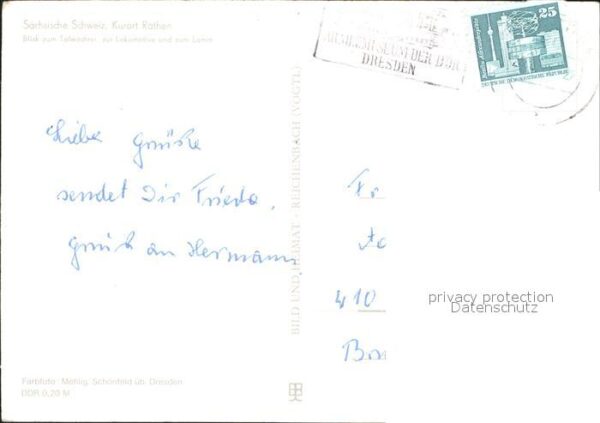 Sächsische Schweiz, Kurort Rathen
Blick zum Talwächter, zur Lokomotive und zum Lamm
ARMEEMUSEUM DER DDR
DRESDEN
25
DEUTSCHE DEMOKRATISCHE REPUBLIK
Liebe Grüße
sendet Dir Frieda.
Gruß an Hermann
BILD UND HEIMAT · REICHENBACH (VOGTL)
Fr
410
privacy protection
Datenschutz
Farbfoto: Mehlig, Schönfeld üb. Dresden
DDR 0,20 M